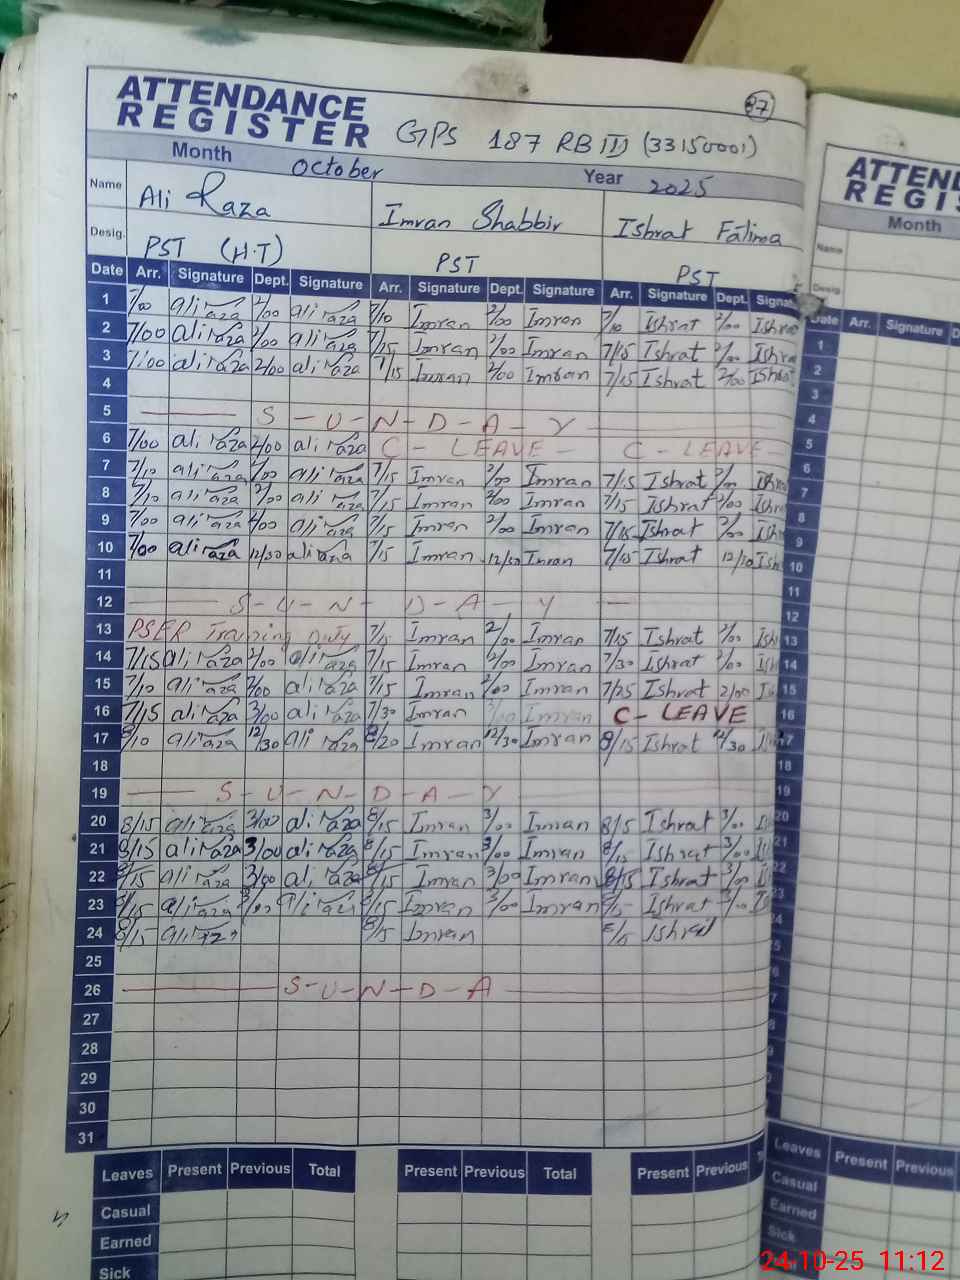 37
ATTENDANCE
REGISTER GPS 187 RB III (33150001)
Month October Year 2025
Name Ali Raza Imran Shabbir Ishrat Fatima
Desig. PST (H.T) PST PST
Date Arr. Signature Dept. Signature Arr. Signature Dept. Signature Arr. Signature Dept. Signat
1 7/00 ali raza 2/00 ali raza 7/10 Imran 2/00 Imran 7/10 Ishrat 2/00 Ishra
2 7/00 ali raza 2/00 ali raza 7/15 Imran 2/00 Imran 7/15 Ishrat 2/00 Ishra
3 7/00 ali raza 2/00 ali raza 7/15 Imran 2/00 Imran 7/15 Ishrat 2/00 Ishrat
4
5 S - U - N - D - A - Y
6 7/00 ali raza 2/00 ali raza C - LEAVE - C - LEAVE -
7 7/10 ali raza 2/00 ali raza 7/15 Imran 2/00 Imran 7/15 Ishrat 2/00 Ishra
8 7/10 ali raza 2/00 ali raza 7/15 Imran 2/00 Imran 7/15 Ishrat 2/00 Ishr
9 7/00 ali raza 2/00 ali raza 7/15 Imran 2/00 Imran 7/15 Ishrat 2/00 Ish
10 7/00 ali raza 12/30 ali raza 7/15 Imran 12/30 Imran 7/15 Ishrat 12/30 Ish
11
12 S - U - N - D - A - Y
13 PSER Training Duty 7/15 Imran 2/00 Imran 7/15 Ishrat 2/00 Ish
14 7/15 ali raza 2/00 ali raza 7/15 Imran 2/00 Imran 7/30 Ishrat 2/00 Ish
15 7/10 ali raza 2/00 ali raza 7/15 Imran 2/00 Imran 7/25 Ishrat 2/00 Is
16 7/15 ali raza 3/00 ali raza 7/30 Imran 3/00 Imran C - LEAVE
17 8/10 ali raza 12/30 ali raza 8/20 Imran 12/30 Imran 8/15 Ishrat 12/30
18
19 S - U - N - D - A - Y
20 8/15 ali raza 3/00 ali raza 8/15 Imran 3/00 Imran 8/15 Ishrat 3/00 I
21 8/15 ali raza 3/00 ali raza 8/15 Imran 3/00 Imran 8/15 Ishrat 3/00
22 8/15 ali raza 3/00 ali raza 8/15 Imran 3/00 Imran 8/15 Ishrat 3/00 I
23 8/15 ali raza 3/00 ali raza 8/15 Imran 3/00 Imran 8/15 Ishrat 3/00 Is
24 8/15 ali raza 8/15 Imran 8/15 Ishrat
25
26 S - U - N - D - A
27
28
29
30
31
Leaves Present Previous Total Present Previous Total Present Previous T
Casual
Earned
Sick
ATTEN
REGIS
Month
Name
Desig
Date Arr. Signature D
1
2
3
4
5
6
7
8
9
10
11
12
13
14
15
16
17
18
19
20
21
22
23
24
25
Leaves Present Previous
Casual
Earned
Sick
24-10-25 11:12